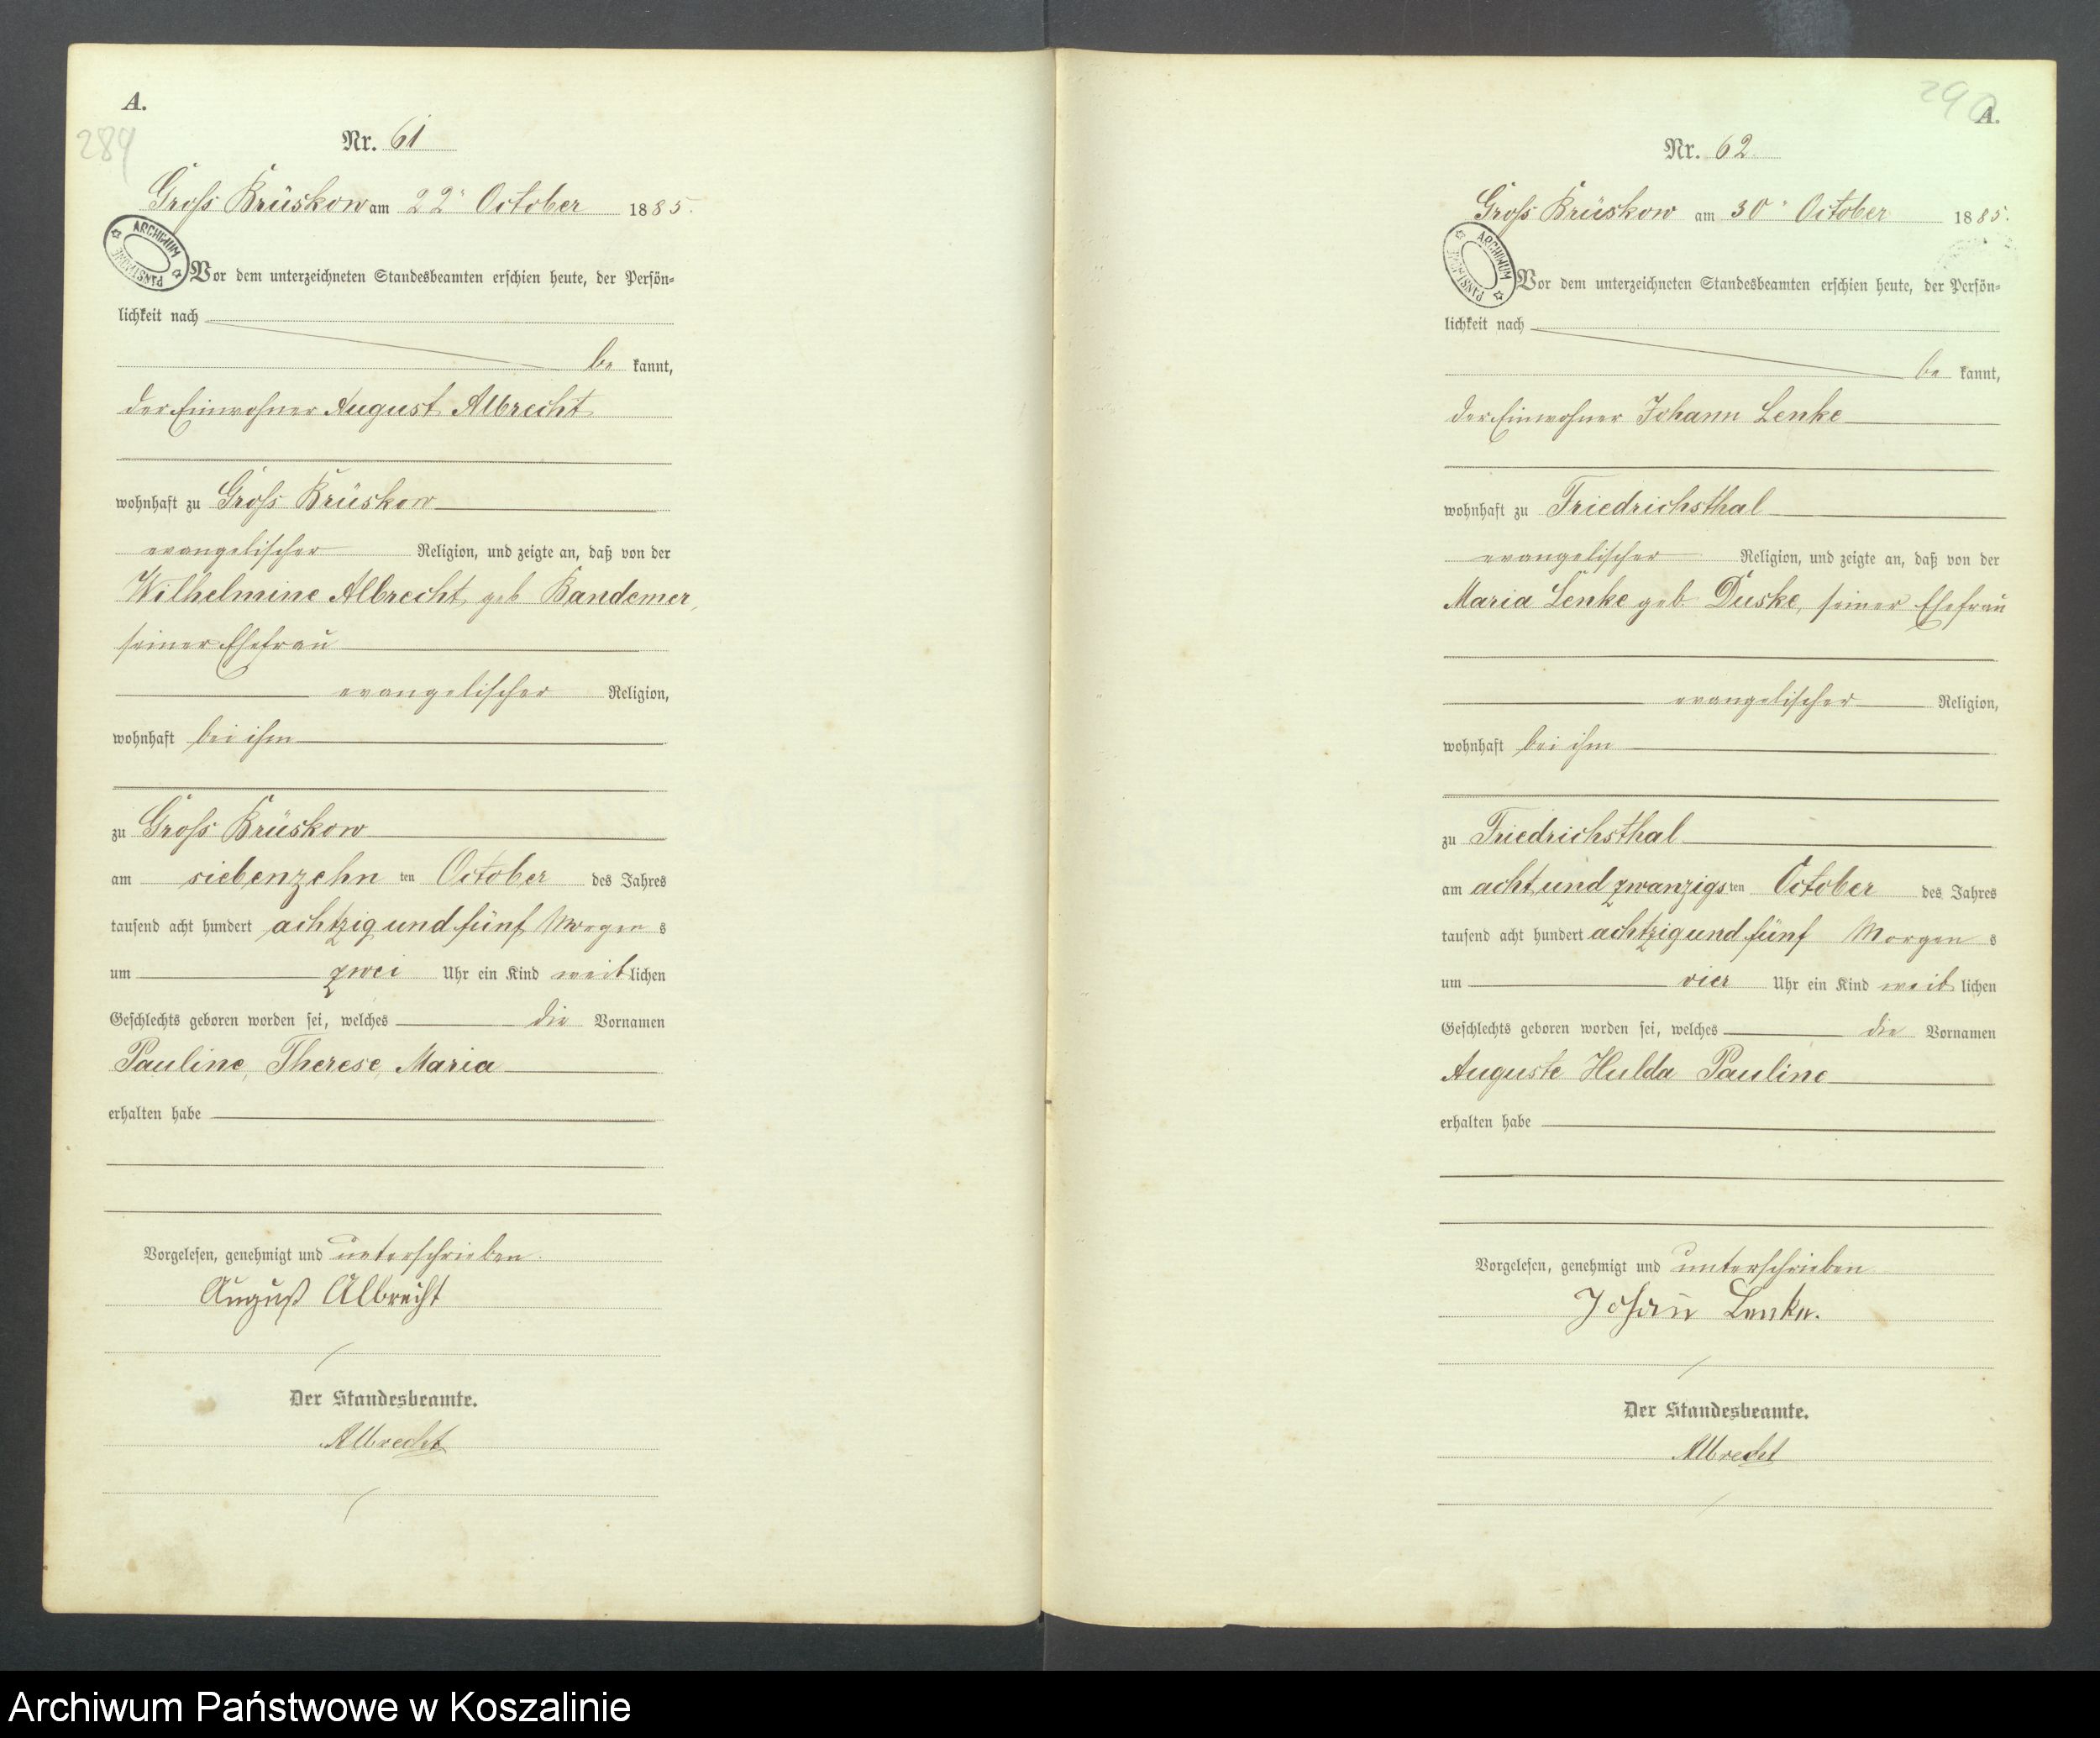 A.
289
Nr. 61
Groß Brüskow am 22ᵗ October 1885.
ARCHIWUM PAŃSTWOWE
Vor dem unterzeichneten Standesbeamten erschien heute, der Persön=
lichkeit nach
be kannt,
der Einwohner August Albrecht
wohnhaft zu Groß Brüskow
evangelischer Religion, und zeigte an, daß von der
Wilhelmine Albrecht, geb Bandemer,
seiner Ehefrau
evangelischer Religion,
wohnhaft bei ihm
zu Groß Brüskow
am siebenzehn ten October des Jahres
tausend acht hundert achtzig und fünf Morgen s
um zwei Uhr ein Kind weib lichen
Geschlechts geboren worden sei, welches die Vornamen
Pauline, Therese, Maria
erhalten habe
Vorgelesen, genehmigt und unterschrieben
August Albrecht
Der Standesbeamte.
Albrecht
290
A.
Nr. 62
Groß Brüskow am 30ᵗ October 1885.
ARCHIWUM PAŃSTWOWE
Vor dem unterzeichneten Standesbeamten erschien heute, der Persön=
lichkeit nach
be kannt,
der Einwohner Johann Lenke
wohnhaft zu Friedrichsthal
evangelischer Religion, und zeigte an, daß von der
Maria Lenke geb. Duske, seiner Ehefrau
evangelischer Religion,
wohnhaft bei ihm
zu Friedrichsthal
am acht und zwanzigs ten October des Jahres
tausend acht hundert achtzig und fünf Morgen s
um vier Uhr ein Kind weib lichen
Geschlechts geboren worden sei, welches die Vornamen
Auguste Hulda Pauline
erhalten habe
Vorgelesen, genehmigt und unterschrieben
Johann Lenke.
Der Standesbeamte.
Albrecht
Archiwum Państwowe w Koszalinie